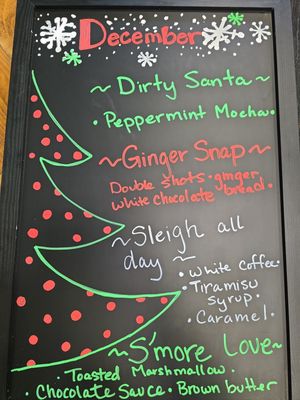 December
~Dirty Santa~
• Peppermint Mocha •
~Ginger Snap~
Double shots • ginger
white chocolate bread •
~Sleigh all
day~
• White Coffee •
• Tiramisu
syrup •
• Caramel •
~S'more Love~
• Toasted Marshmallow •
• Chocolate Sauce • Brown butter